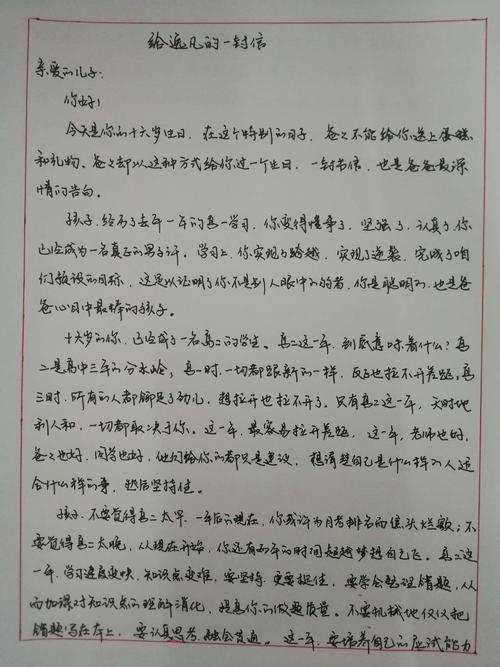 给逸凡的一封信
亲爱的儿子:
你好!
今天是你的十六岁生日,在这个特别的日子,爸爸不能给你送上蛋糕
和礼物。爸爸却以这种方式给你过一个生日,一封书信,也是爸爸最深
情的告白。
孩子,经历了去年一年的高一学习,你变得懂事了,坚强了,认真了,你
已经成为一名真正的男子汉。学习上,你实现了跨越,实现了逆袭,完成了咱
们放设的目标,这足以证明了你不是别人眼中的弱者,你是聪明的,也是爸
爸心目中最棒的孩子。
十六岁的你,已经成了一名高二的学生。高二这一年,到底意味着什么?高
二是高中三年的分水岭,高一时,一切都跟新的一样,反应也拉不开差距,高
三时,所有的人都铆足了劲儿,想拉开也拉不开了。只有高二这一年,天时地
利人和,一切都取决于你。这一年,最容易拉开差距,这一年,老师也好,
爸爸也好,同学也好,他们给你的都只是建议,想清楚自己是什么样的人适
合什么样的事,然后坚持住。
孩子,不要觉得高二太早,一年后的现在,你或许为月考排名而焦头烂额;不
要觉得高二太晚,从现在开始,你还有两年的时间超越梦想自己飞。高二这
一年,学习进度更快,知识点更难,要坚持,更要挺住,要学会整理错题,从
而加深对知识点的理解消化,提高你的做题质量。不要机械地仅仅把
错题写在本上,要认真思考,融会贯通。这一年,要培养自己的应试能力